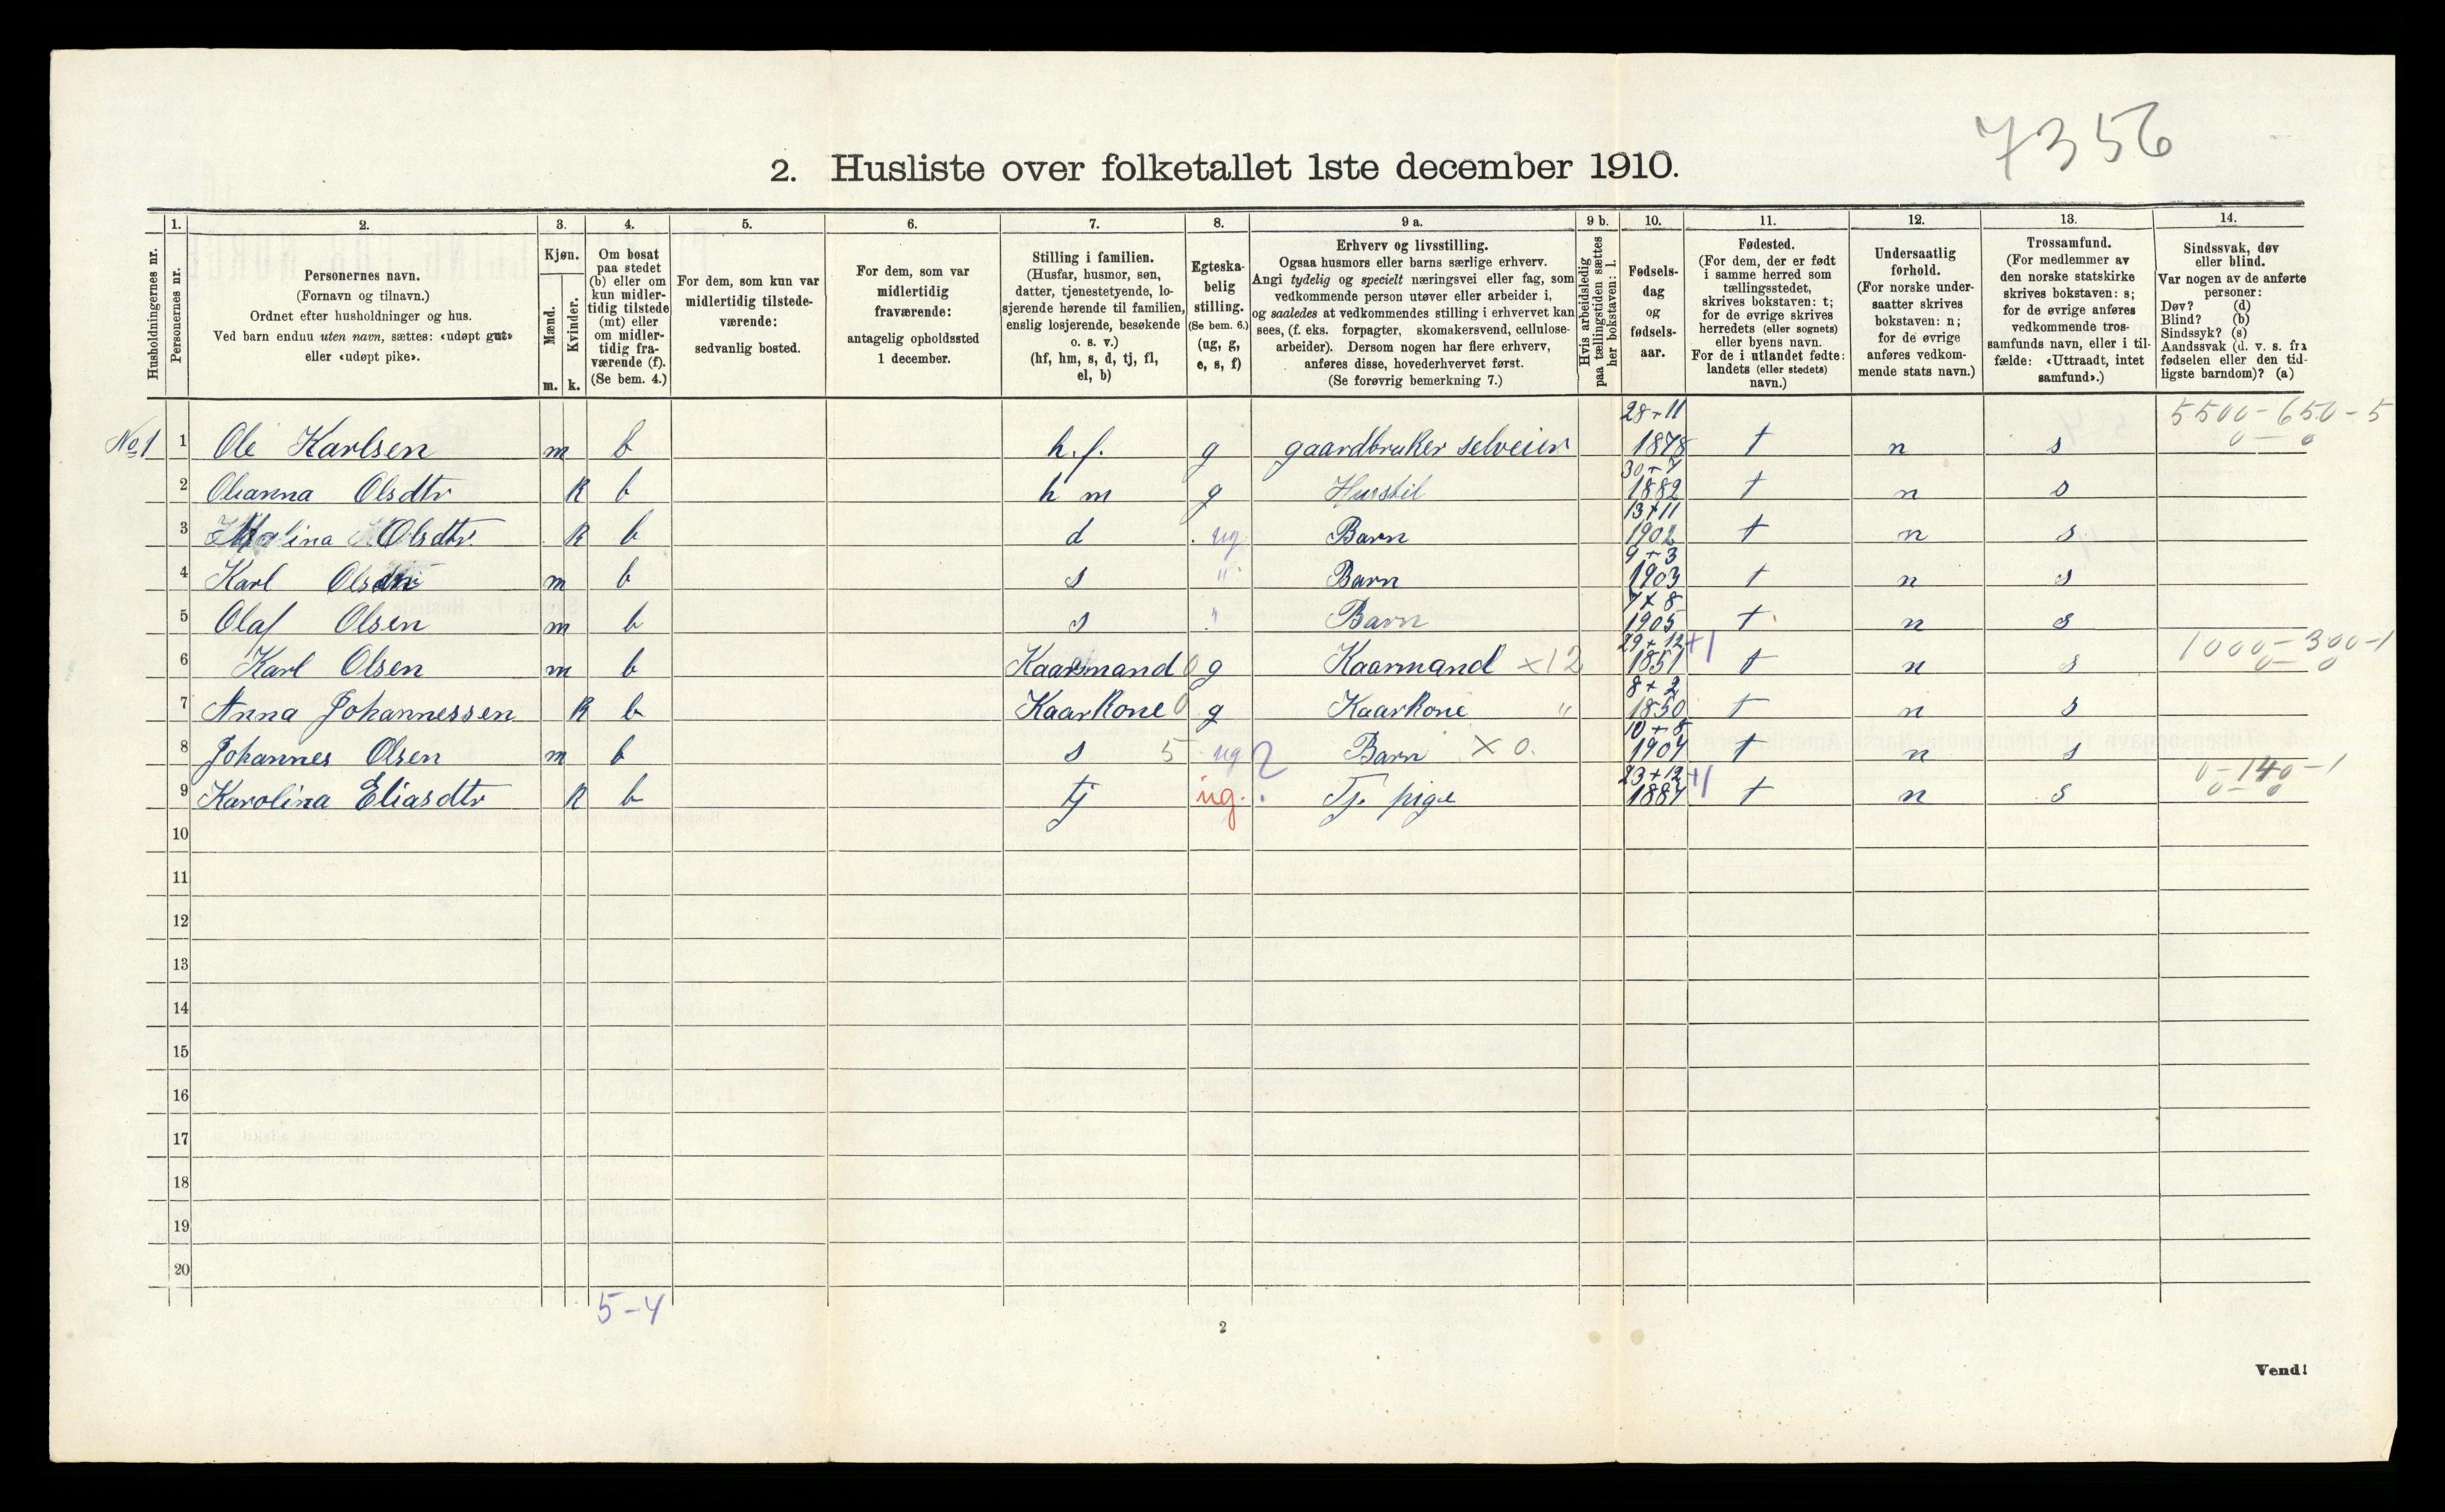 7356
2. Husliste over folketallet 1ste december 1910.
Husholdningernes nr.
1.
Personernes nr.
2.
Personernes navn.
(Fornavn og tilnavn.)
Ordnet efter husholdninger og hus.
Ved barn endnu uten navn, sættes: «udøpt gut»
eller «udøpt pike».
3.
Kjøn.
Mænd.
Kvinder.
m. k.
4.
Om bosat
paa stedet
(b) eller om
kun midler-
tidig tilstede
(mt) eller
om midler-
tidig fra-
værende (f).
(Se bem. 4.)
5.
For dem, som kun var
midlertidig tilstede-
værende:
sedvanlig bosted.
6.
For dem, som var
midlertidig
fraværende:
antagelig opholdssted
1 december.
7.
Stilling i familien.
(Husfar, husmor, søn,
datter, tjenestetyende, lo-
sjerende hørende til familien,
enslig losjerende, besøkende
o. s. v.)
(hf, hm, s, d, tj, fl,
el, b)
8.
Egteska-
belig
stilling.
(Se bem. 6.)
(ug, g,
e, s, f)
9 a.
Erhverv og livsstilling.
Ogsaa husmors eller barns særlige erhverv.
Angi tydelig og specielt næringsvei eller fag, som
vedkommende person utøver eller arbeider i,
og saaledes at vedkommendes stilling i erhvervet kan
sees, (f. eks. forpagter, skomakersvend, cellulose-
arbeider). Dersom nogen har flere erhverv,
anføres disse, hovederhvervet først.
(Se forøvrig bemerkning 7.)
9 b.
Hvis arbeidsledig
paa tællingstiden sættes
her bokstaven: l.
10.
Fødsels-
dag
og
fødsels-
aar.
11.
Fødested.
(For dem, der er født
i samme herred som
tællingsstedet,
skrives bokstaven: t;
for de øvrige skrives
herredets (eller sognets)
eller byens navn.
For de i utlandet fødte:
landets (eller stedets)
navn.)
12.
Undersaatlig
forhold.
(For norske under-
saatter skrives
bokstaven: n;
for de øvrige
anføres vedkom-
mende stats navn.)
13.
Trossamfund.
(For medlemmer av
den norske statskirke
skrives bokstaven: s;
for de øvrige anføres
vedkommende tros-
samfunds navn, eller i til-
fælde: «Uttraadt, intet
samfund».)
14.
Sindssvak, døv
eller blind.
Var nogen av de anførte
personer:
Døv? (d)
Blind? (b)
Sindssyk? (s)
Aandssvak (d. v. s. fra
fødselen eller den tid-
ligste barndom)? (a)
No 1 1 Ole Karlsen m b h.f. g gaardbruker selveier 28-11 1878 t n s 5500-650-5 0-0
2 Olianna Olsdtr k b h m g Husstil 30-7 1882 t n s
3 Olsdtr k b d ug Barn 13+11 1902 t n s
4 Karl m b s " Barn 9+3 1903 t n s
5 Olaf Olsen m b s " Barn 7+8 1905 t n s
6 Karl Olsen m b Kaarmand 0 g Kaarmand x12 29+12 1851 +1 t n s 1000-300-1 0-0
7 Anna Johannessen k b Kaarkone 0 g Kaarkone " 8+2 1850 t n s
8 Johannes Olsen m b s 5 ug 2 Barn X 0. 10+8 1907 t n s
9 Karolina Eliasdtr k b tj ug. Tj. pige 23+12 1887 +1 t n s 0-140-1 0-0
10
11
12
13
14
15
16
17
18
19
20
5-4
2
Vend!